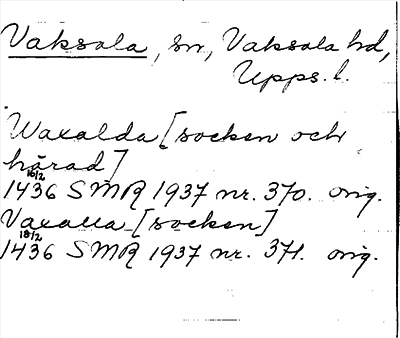 Vaksala, sn, Vaksala hd,
Upps. l.
Waxalda [socken och
härad]
16/2
1436 SMR 1937 nr. 370. orig.
Vaxalla [socken]
18/2
1436 SMR 1937 nr. 371. orig.